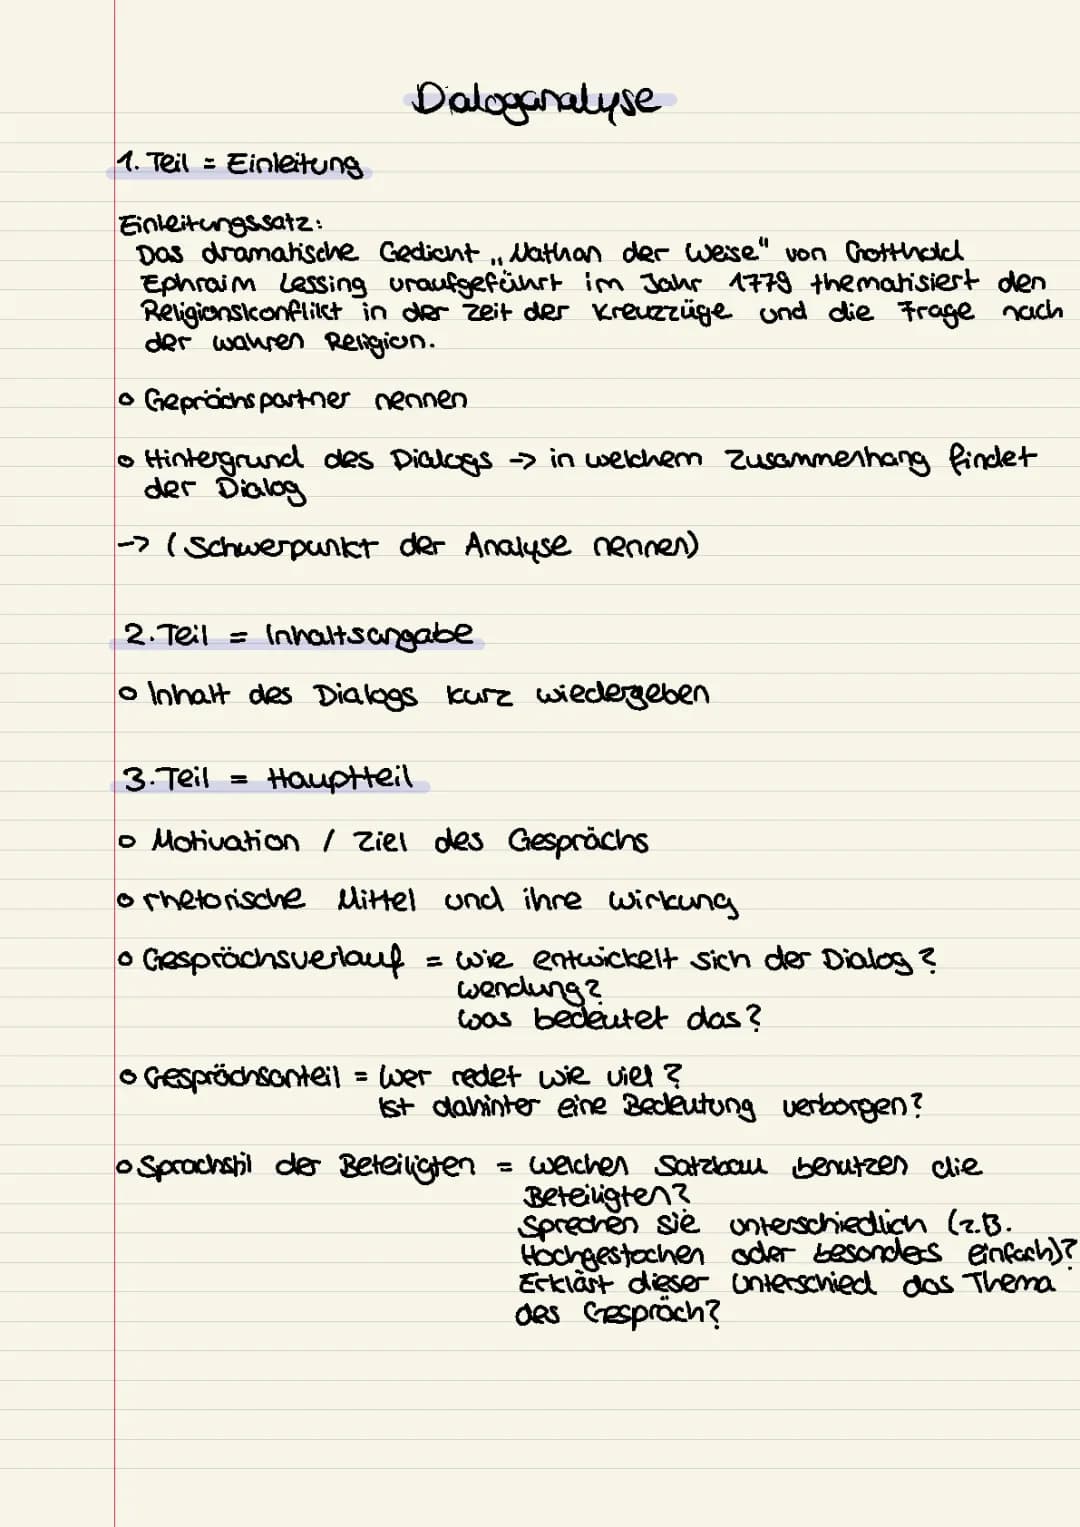 Daloganalyse
1. Teil = Einleitung
Einleitungssatz:
Das dramatische Gedicht „Nathan der Weise" von Gotthold
Ephraim Lessing uraufgeführt im Jahr 1779 thematisiert den
Religionskonflikt in der Zeit der Kreuzzüge und die Frage nach
der wahren Religion.
o Geprächspartner nennen
o Hintergrund des Dialogs -> in welchem Zusammenhang findet
der Dialog
-> (Schwerpunkt der Analyse nennen)
2. Teil = Inhaltsangabe
o Inhalt des Dialogs kurz wiedergeben
3. Teil = Hauptteil
o Motivation / Ziel des Gesprächs
o rhetorische Mittel und ihre Wirkung
o Gesprächsverlauf = wie entwickelt sich der Dialog?
wendung?
was bedeutet das?
o Gesprächsanteil = Wer redet wie viel?
Ist dahinter eine Bedeutung verborgen?
o Sprachstil der Beteiligten = welchen Satzbau benutzen die
Beteiligten?
Sprechen sie unterschiedlich (z.B.
Hochgestochen oder besonders einfach)?
Erklärt dieser Unterschied das Thema
des Gespräch?